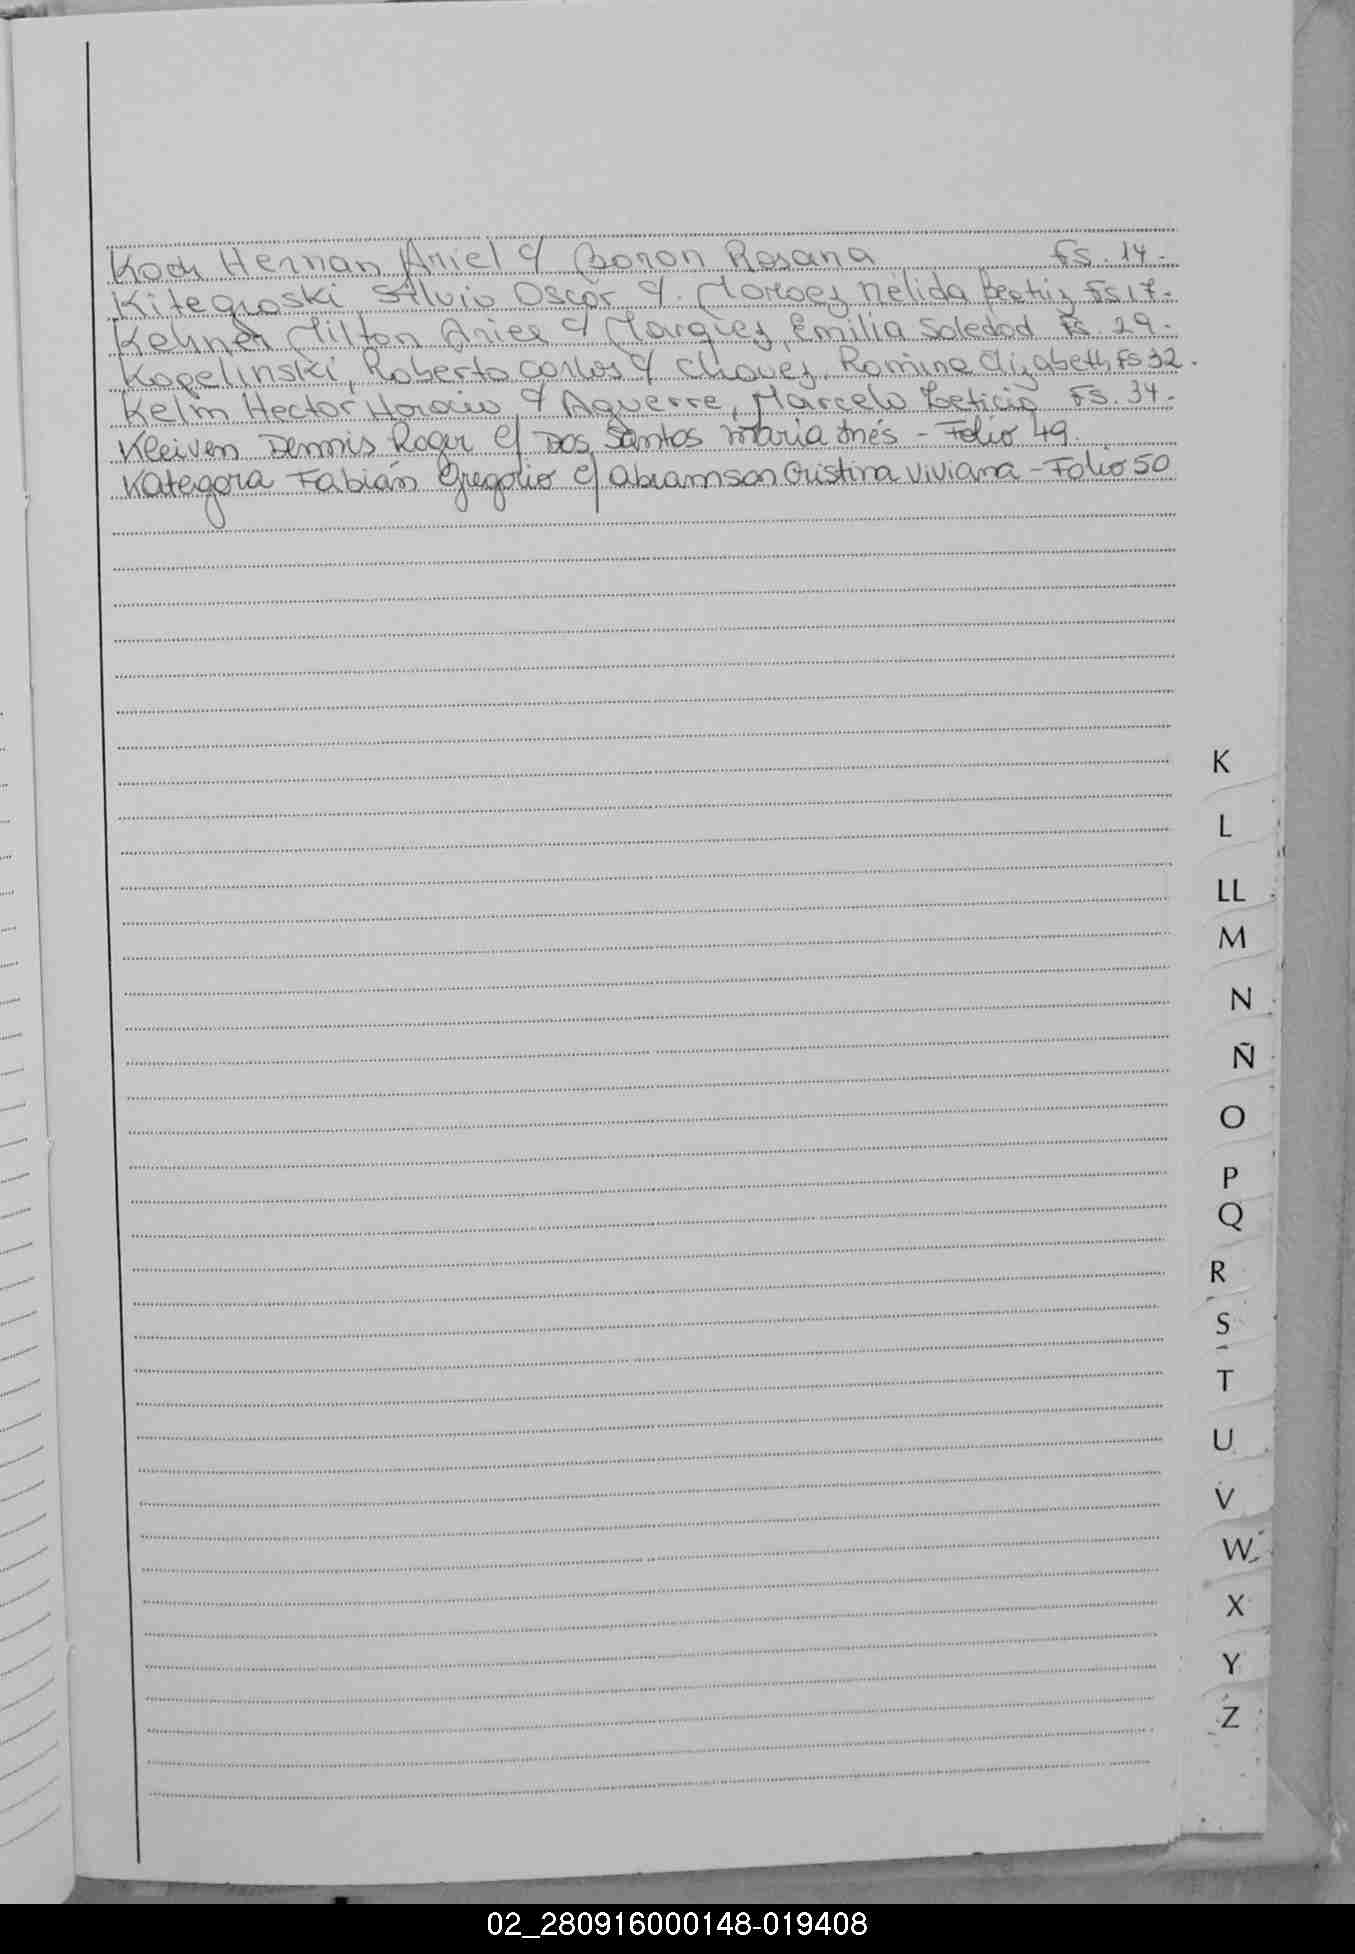 Koch Hernan Ariel c/ Boron Rosana Fs. 14.-
Kitegroski Silvio Oscar c/. Nélida Beatriz Fs 17.-
Kehner Milton Ariel c/ Marquez, Emilia Soledad Fs. 29.-
Kopelinski, Roberto Carlos c/ Chavez, Romina Elizabeth Fs 32.
Kelm Hector Horacio c/ Aguerre, Marcela Leticia Fs. 34.-
Kleiven Dennis Roger c/ Dos Santos María Inés - Folio 49.
Kategora Fabián Gregorio c/ Abramson Cristina Viviana - Folio 50
K
L
LL
M
N
Ñ
O
P
Q
R
S
T
U
V
W
X
Y
Z
02_280916000148-019408